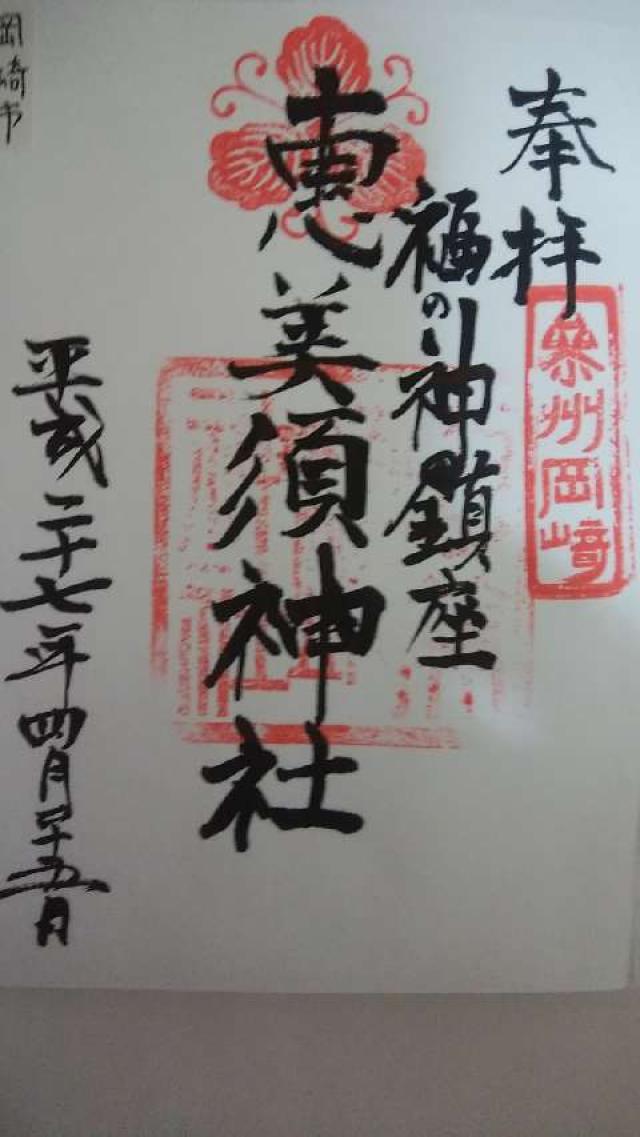 奉拝
參州岡﨑
福の神鎮座
恵美須神社
平成二十七年四月二十五日
岡崎市